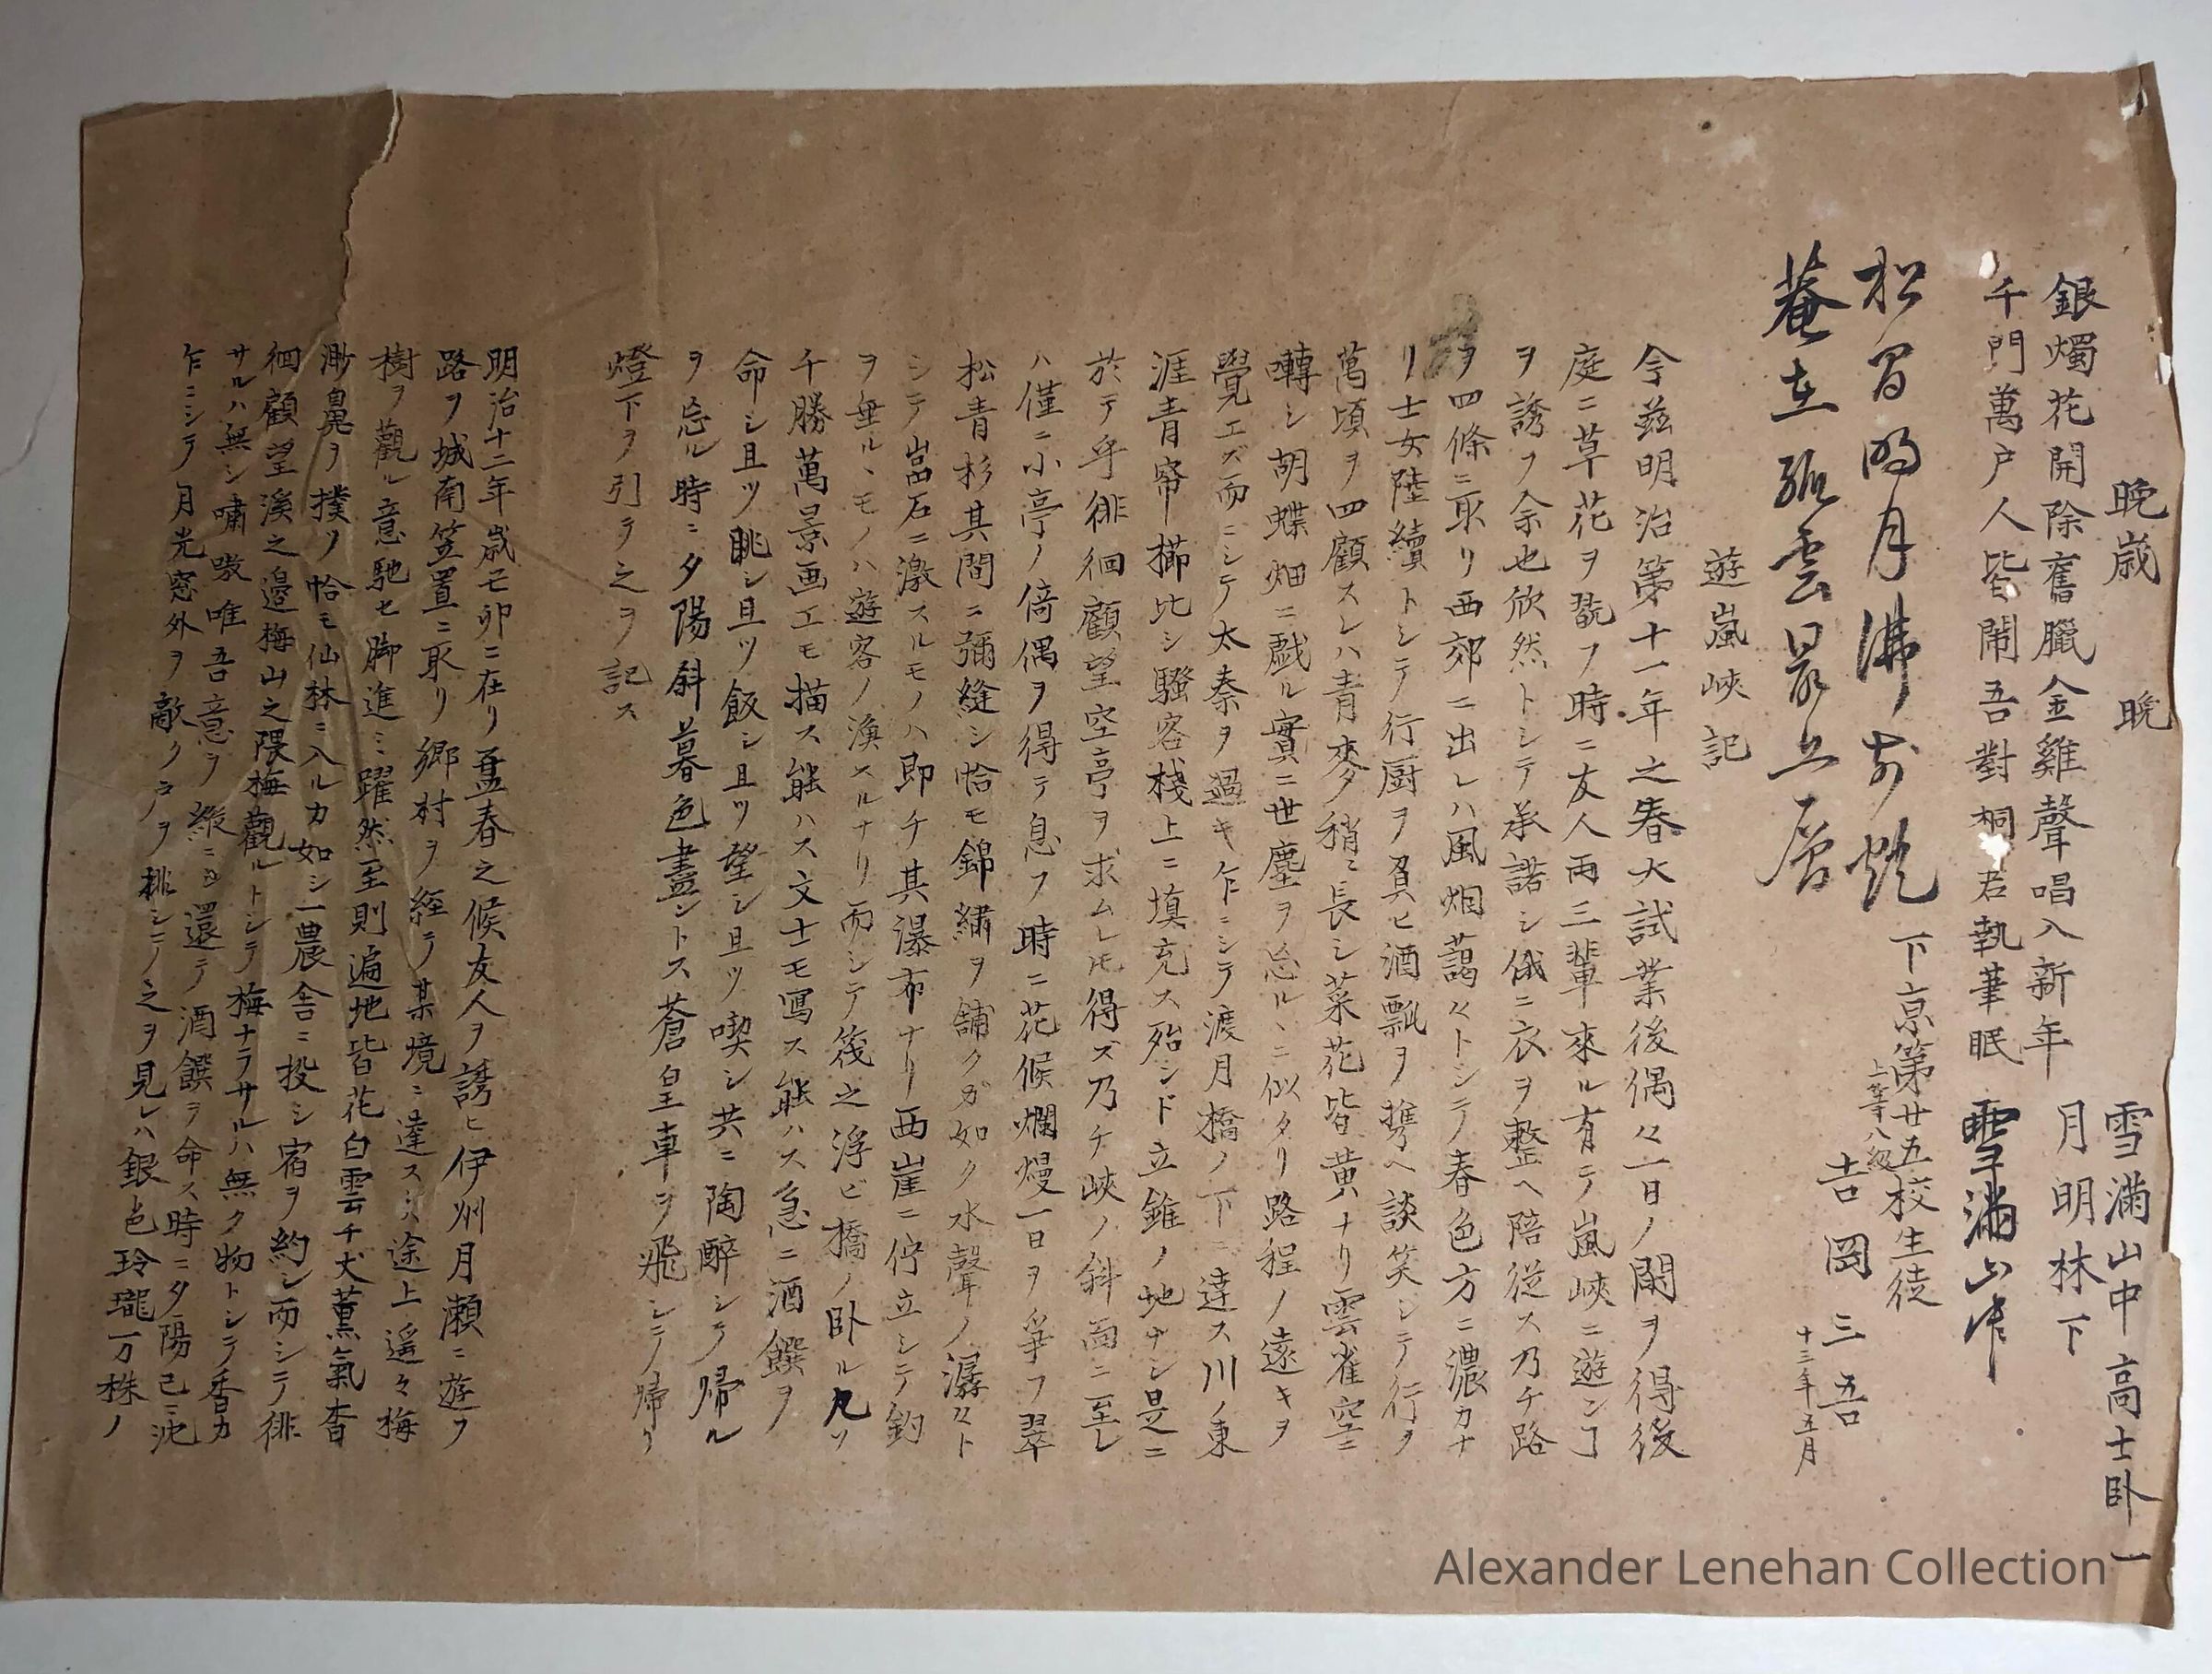 晩歳　晩
雪滿山中高士卧一
銀燭花開除舊臘金雞聲唱入新年
月明林下
千門萬户人皆鬧吾對桐君執筆眠
雪滿山中
松間明月沸前
菴在孤雲最上層
下京第廿五校生徒
上等八級
吉岡三吾
十三年五月
遊嵐峽記
今茲明治第十一年之春大試業後偶々一日ノ閑ヲ得後
庭ニ草花ヲ翫フ時ニ友人両三輩來ル有テ嵐峽ニ遊ンヿ
ヲ誘フ余也欣然トシテ承諾シ俄ニ衣ヲ整ヘ陪従ス乃チ路
ヲ四條ニ取リ西郊ニ出レハ風烟藹々トシテ春色方ニ濃カナ
リ士女陸續トシテ行厨ヲ負ヒ酒瓢ヲ携ヘ談笑シテ行ク
萬頃ヲ四顧スレハ青麥稍ミ長シ菜花皆黄ナリ雲雀空ニ
囀シ胡蝶畑ニ戯ル實ニ世塵ヲ忘ルヽニ似タリ路程ノ遠キヲ
覺エズ而ニシテ太秦ヲ過キ乍ニシテ渡月橋ノ下ニ達ス川ノ東
涯青帘櫛比シ騒客棧上ニ填充ス殆ンド立錐ノ地ナシ是ニ
於テ乎徘徊顧望空亭ヲ求ムレ𪜈得ズ乃チ峽ノ斜面ニ至レ
ハ僅ニ小亭ノ倚偶ヲ得テ息フ時ニ花候爛熳一日ヲ爭フ翠
松青杉其間ニ彌縫シ恰モ錦繍ヲ舗クガ如ク水聲ノ潺々ト
シテ嵓石ニ激スルモノハ即チ其瀑布ナリ西崖ニ佇立シテ釣
ヲ垂ルヽモノハ遊客ノ漁スルナリ而シテ筏之浮ビ橋ノ卧ル凡ソ
千勝萬景画エモ描ス能ハス文士モ寫ス能ハス急ニ酒饌ヲ
命シ且ツ眺シ且ツ飯シ且ツ望シ且ツ喫シ共ニ陶醉シテ帰ル
ヲ忘ル時ニ夕陽斜暮色盡ントス蒼皇車ヲ飛シテ帰リ
燈下ヲ引テ之ヲ記ス
明治十二年歳己卯ニ在リ孟春之候友人ヲ誘ヒ伊州月瀬ニ遊フ
路ヲ城南笠置ニ取リ郷村ヲ経テ某境ニ達ス途上遥々梅
樹ヲ觀ル意馳セ脚進ミ躍然至則遍地皆花白雲チ犬薫氣杳
渺鼻ヲ撲ツ恰モ仙林ニ入ルカ如シ一農舎ニ投シ宿ヲ約シ而シテ徘
徊顧望溪之邉梅山之隈梅觀ルトシテ梅ナラサルハ無ク物トシテ香カ
サルハ無シ嘯嗷唯吾意ヲ縱ニシ還テ酒饌ヲ命ス時ニ夕陽已ニ沈
乍ニシテ月光窓外ヲ敲ク戸ヲ排シテ之ヲ見レハ銀色玲瓏万株ノ
Alexander Lenehan Collection